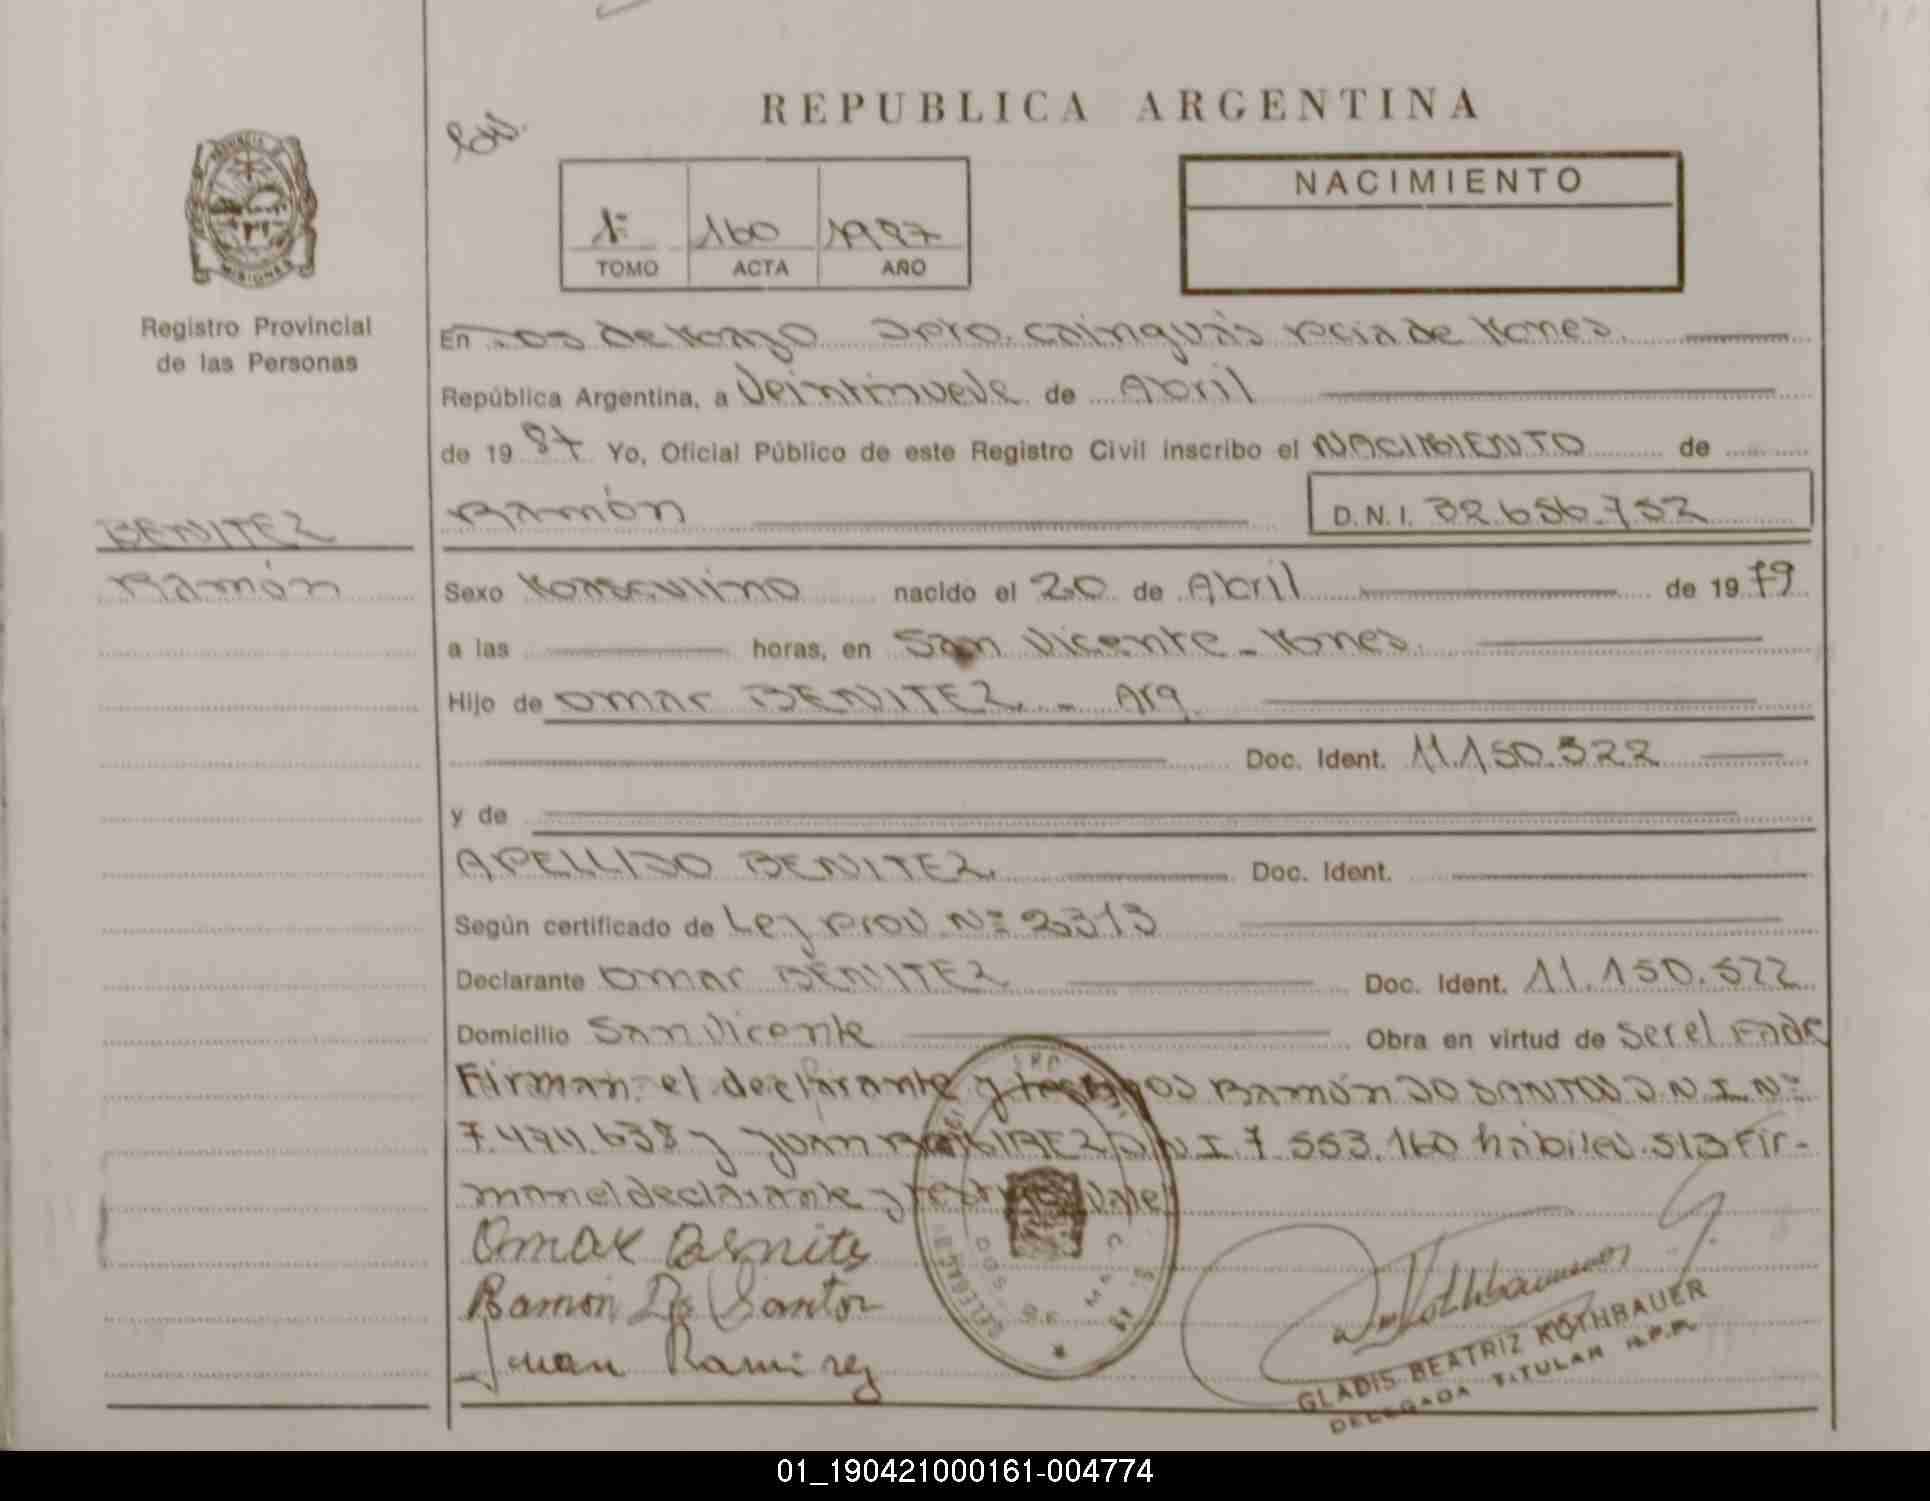 REPUBLICA ARGENTINA
PROVINCIA
MISIONES
Registro Provincial
de las Personas
1º 160 1987
TOMO ACTA AÑO
NACIMIENTO
En Dos de Mayo Dpto. Cainguás Pcia de Mones.
República Argentina, a Veintinueve de Abril
de 19 87 Yo, Oficial Público de este Registro Civil inscribo el NACIMIENTO de
Ramón D.N.I. 32.656.752
BENITEZ
Ramón
Sexo Masculino nacido el 20 de Abril de 19 79
a las horas, en San Vicente - Mones.
Hijo de Omar BENITEZ - Arg
Doc. Ident. 11.150.522
y de
APELLIDO BENITEZ. Doc. Ident.
Según certificado de Ley Prov. Nº 2313
Declarante Omar BENITEZ Doc. Ident. 11.150.522
Domicilio San Vicente Obra en virtud de ser el Padre
Firman: el declarante y testigos Ramón DO SANTOS D.N.I. Nº
7.474.638 y Juan RAMIREZ D.N.I. 7.553.160 hábiles. S/B Fir-
man el declarante y testigos Vale
Omar Benitez
Ramon Do Santos
Juan Ramirez
GLADIS BEATRIZ KOTHBAUER
DELEGADA TITULAR R.P.P.
01_190421000161-004774